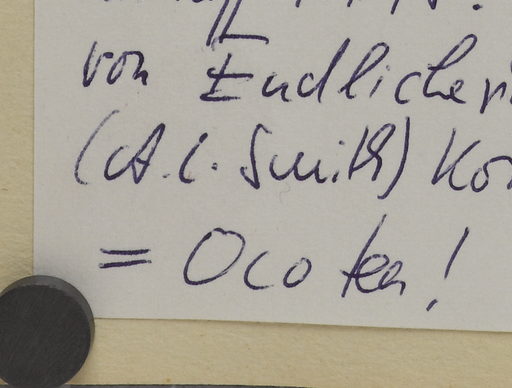 von Endlicheri
(A.C. Smith) Kos
= Ocotea!